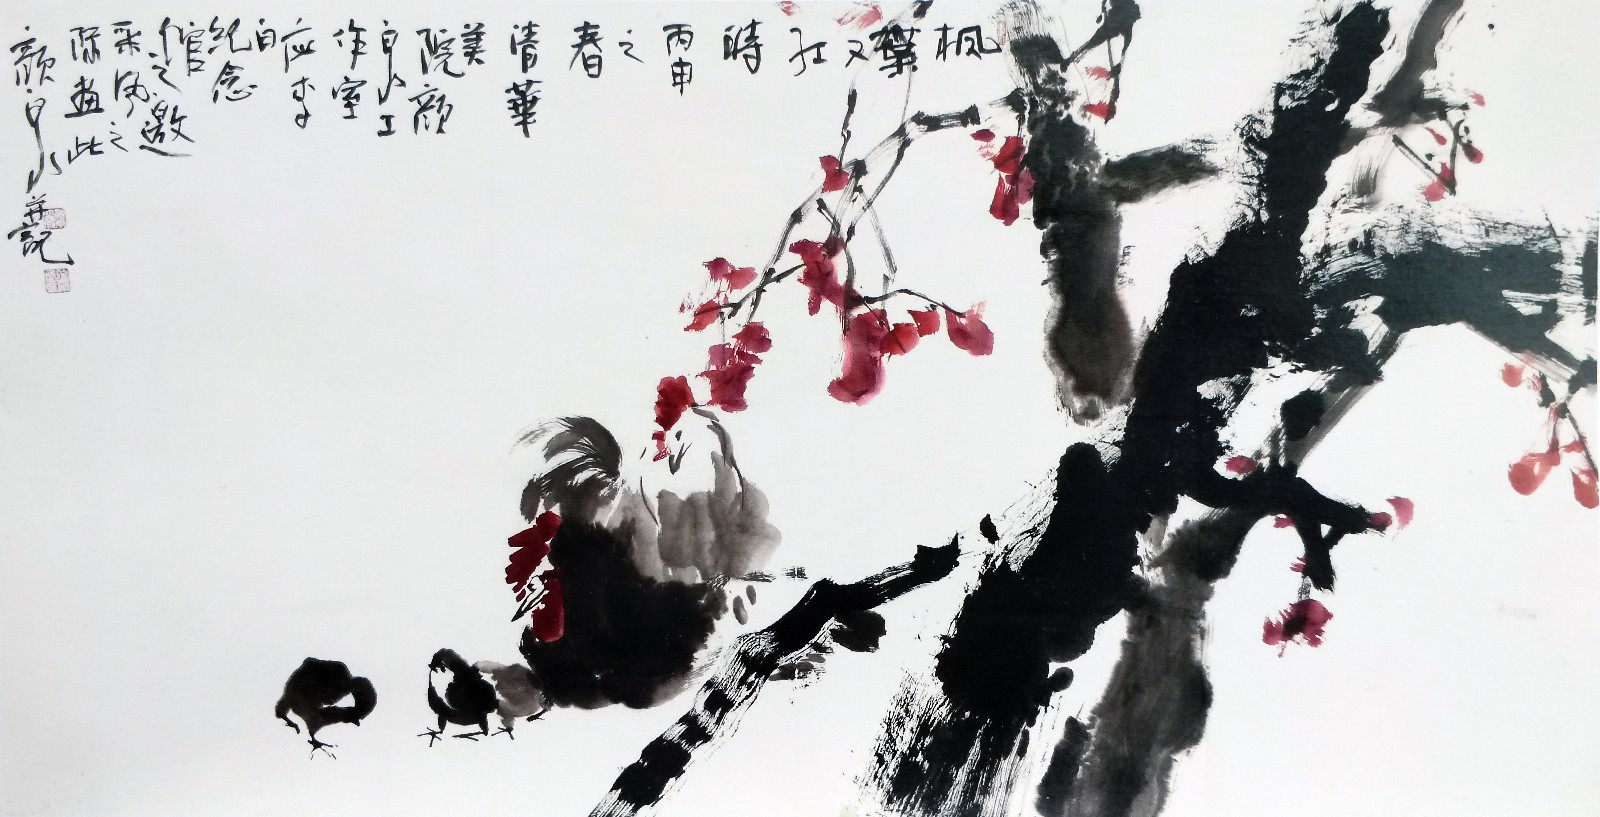 枫
葉
又
红
時
丙申
之
春
清華
美
院顔
泉工
作室
应李
白
纪念
馆之邀
采风之
际画此
顔泉并記